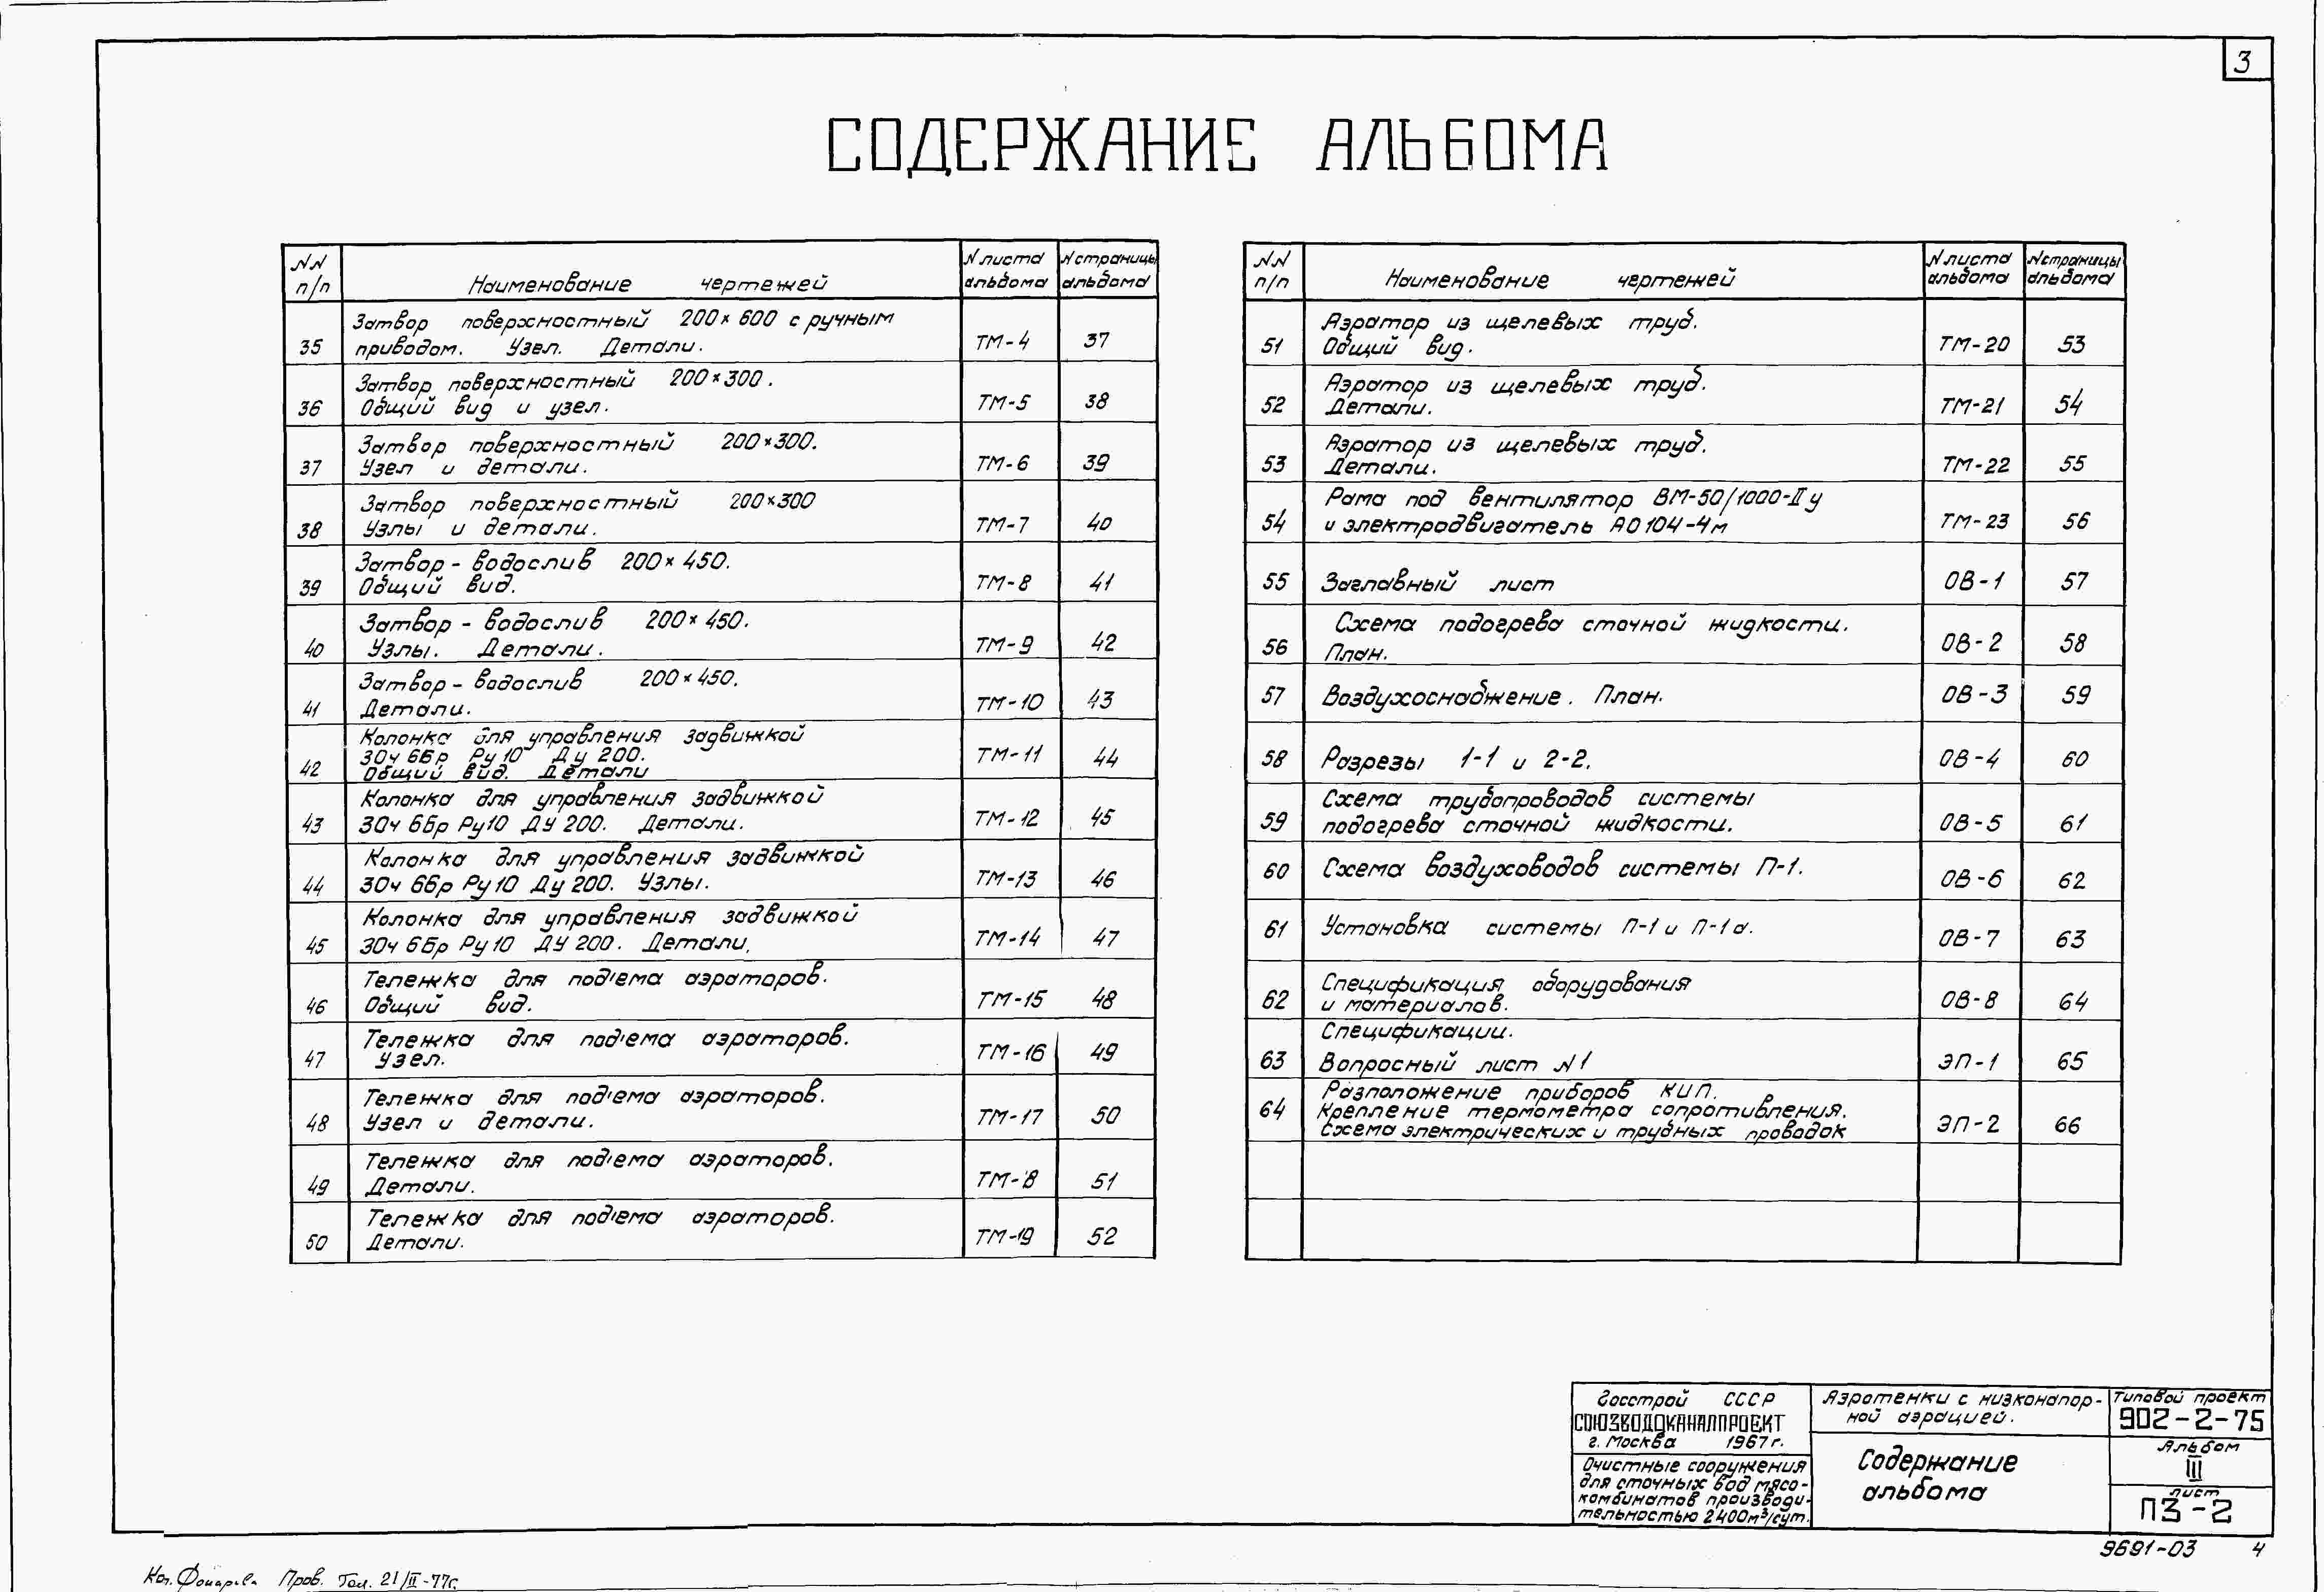 3
СОДЕРЖАНИЕ АЛЬБОМА
NN п/п Наименование чертежей N листа альбома N страницы альбома
35 Затвор поверхностный 200×600 с ручным
приводом. Узел. Детали. ТМ-4 37
36 Затвор поверхностный 200×300.
Общий вид и узел. ТМ-5 38
37 Затвор поверхностный 200×300.
Узел и детали. ТМ-6 39
38 Затвор поверхностный 200×300
Узлы и детали. ТМ-7 40
39 Затвор-водослив 200×450.
Общий вид. ТМ-8 41
40 Затвор-водослив 200×450.
Узлы. Детали. ТМ-9 42
41 Затвор-водослив 200×450.
Детали. ТМ-10 43
42 Колонка для управления задвижкой
30ч 6Бр Ру10 Ду 200.
Общий вид. Детали ТМ-11 44
43 Колонка для управления задвижкой
30ч 6Бр Ру10 ДУ 200. Детали. ТМ-12 45
44 Колонка для управления задвижкой
30ч 6бр Ру10 Ду 200. Узлы. ТМ-13 46
45 Колонка для управления задвижкой
30ч 6Бр Ру10 ДУ 200. Детали. ТМ-14 47
46 Тележка для под'ема аэраторов.
Общий вид. ТМ-15 48
47 Тележка для под'ема аэраторов.
Узел. ТМ-16 49
48 Тележка для под'ема аэраторов.
Узел и детали. ТМ-17 50
49 Тележка для под'ема аэраторов.
Детали. ТМ-18 51
50 Тележка для под'ема аэраторов.
Детали. ТМ-19 52
NN п/п Наименование чертежей N листа альбома N страницы альбома
51 Аэратор из щелевых труб.
Общий вид. ТМ-20 53
52 Аэратор из щелевых труб.
Детали. ТМ-21 54
53 Аэратор из щелевых труб.
Детали. ТМ-22 55
54 Рама под вентилятор ВМ-50/1000-II у
и электродвигатель АО104-4м ТМ-23 56
55 Заглавный лист ОВ-1 57
56 Схема подогрева сточной жидкости.
План. ОВ-2 58
57 Воздухоснабжение. План. ОВ-3 59
58 Разрезы 1-1 и 2-2. ОВ-4 60
59 Схема трубопроводов системы
подогрева сточной жидкости. ОВ-5 61
60 Схема воздуховодов системы П-1. ОВ-6 62
61 Установка системы П-1 и П-1а. ОВ-7 63
62 Спецификация оборудования
и материалов. ОВ-8 64
Спецификации.
63 Вопросный лист N1 ЭП-1 65
Разположение приборов КИП.
64 Крепление термометра сопротивления.
Схема электрических и трубных проводок ЭП-2 66
Госстрой СССР
СОЮЗВОДОКАНАЛПРОЕКТ
г. Москва 1967г.
Очистные сооружения
для сточных вод мясо-
комбинатов производи-
тельностью 2400м³/сут.
Аэротенки с низконапор-
ной аэрацией.
Содержание
альбома
Типовой проект
902-2-75
Альбом
III
лист
ПЗ-2
9691-03 4
Пров. 21/II-77г.